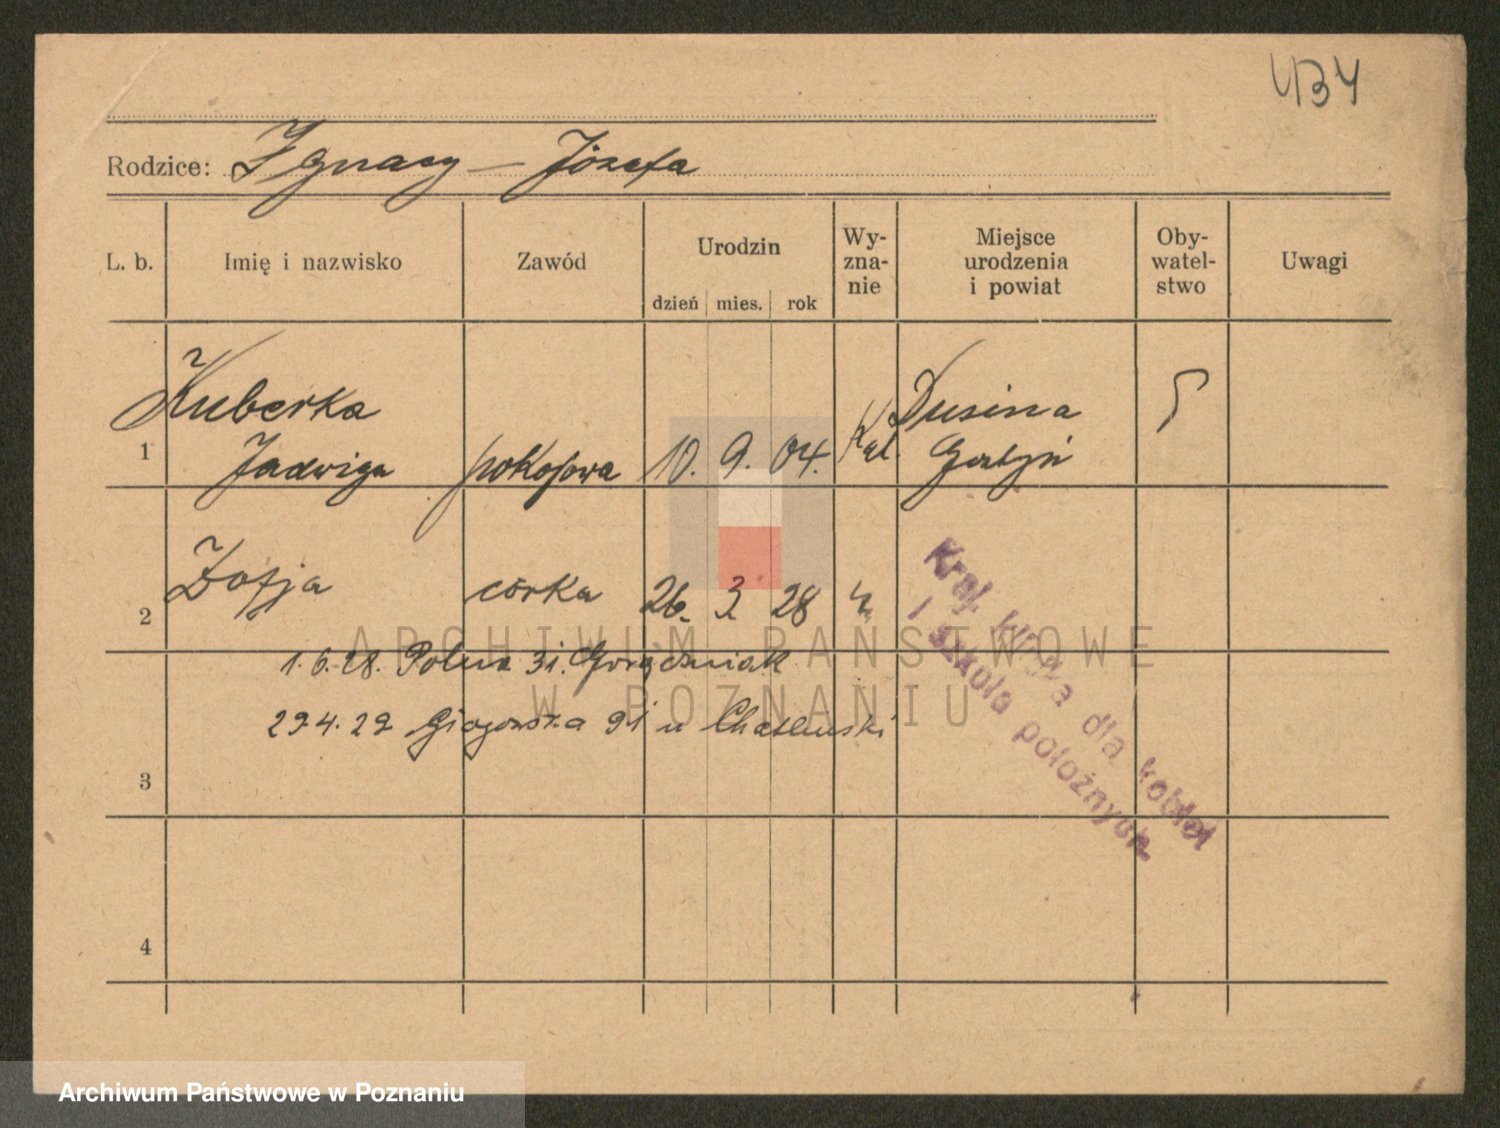 434
Rodzice: Ignacy – Józefa
L. b. Imię i nazwisko Zawód Urodzin dzień mies. rok Wy-zna-nie Miejsce urodzenia i powiat Oby-watel-stwo Uwagi
Kuberka Dusina
1 Jadwiga pokojowa 10. 9. 04. Kat. Gostyń
2 Zofja córka 26. 3 28
1.6.28. Polna 31. Gorączniak
29.4.29 Głogowska 91 u
3
4
Kraj. klinika dla kobiet
i szkoła położnych
ARCHIWUM PAŃSTWOWE
W POZNANIU
Archiwum Państwowe w Poznaniu